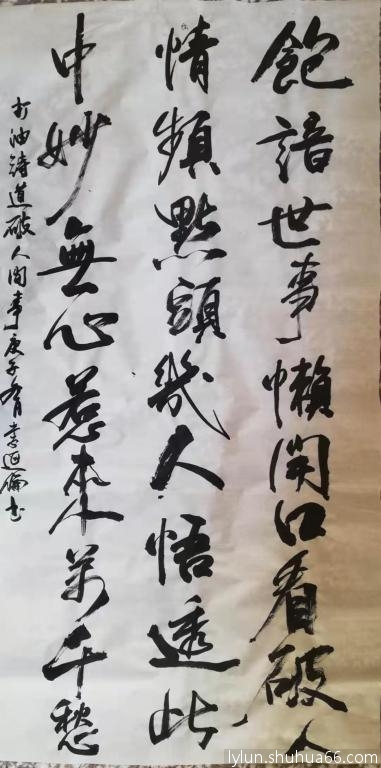 飽諳世事懶開口看破人
情頻點頭幾人悟透此
中妙無心惹來萬千愁
打油詩道破人间事庚子有李迎倫书
lylun.shuhua66.com